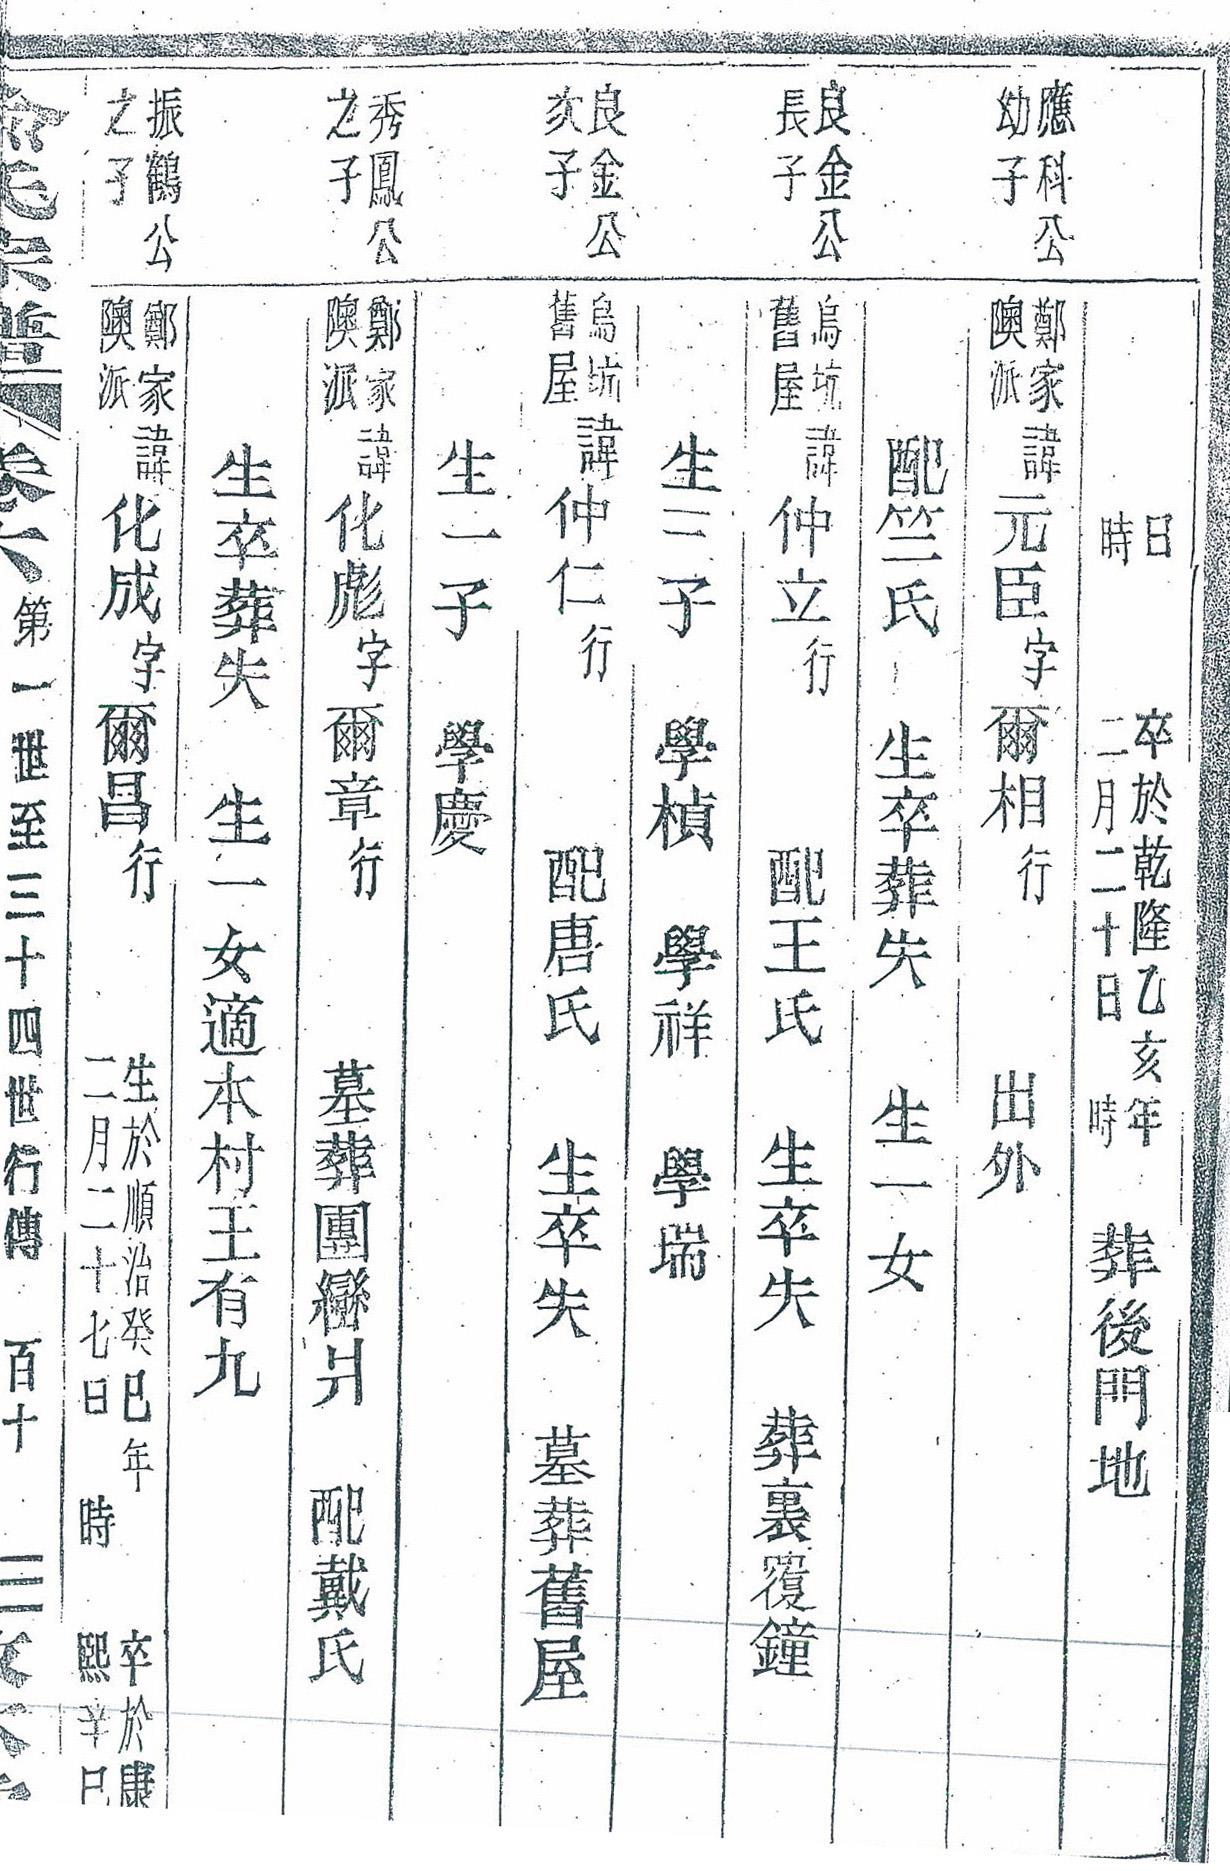 日
時
卒於乾隆乙亥年
二月二十日時
葬後門地
應科公
幼子
鄭家
隩派
諱元臣字爾相行 出外
配竺氏 生卒葬失 生一女
良金公
長子
烏坑
舊屋
諱仲立行 配王氏 生卒失 葬裏覆鐘
生三子 學楨 學祥 學瑞
良金公
次子
烏坑
舊屋
諱仲仁行 配唐氏 生卒失 墓葬舊屋
生一子 學慶
秀鳳公
之子
鄭家
隩派
諱化彪字爾章行 墓葬團巒爿 配戴氏
生卒葬失 生一女適本村王有九
振鶴公
之子
鄭家
隩派
諱化成字爾昌行
生於順治癸巳年
二月二十七日 時
卒於康
熙辛巳
氏宗譜 卷六 第一世至三十四世行傳 百十 三